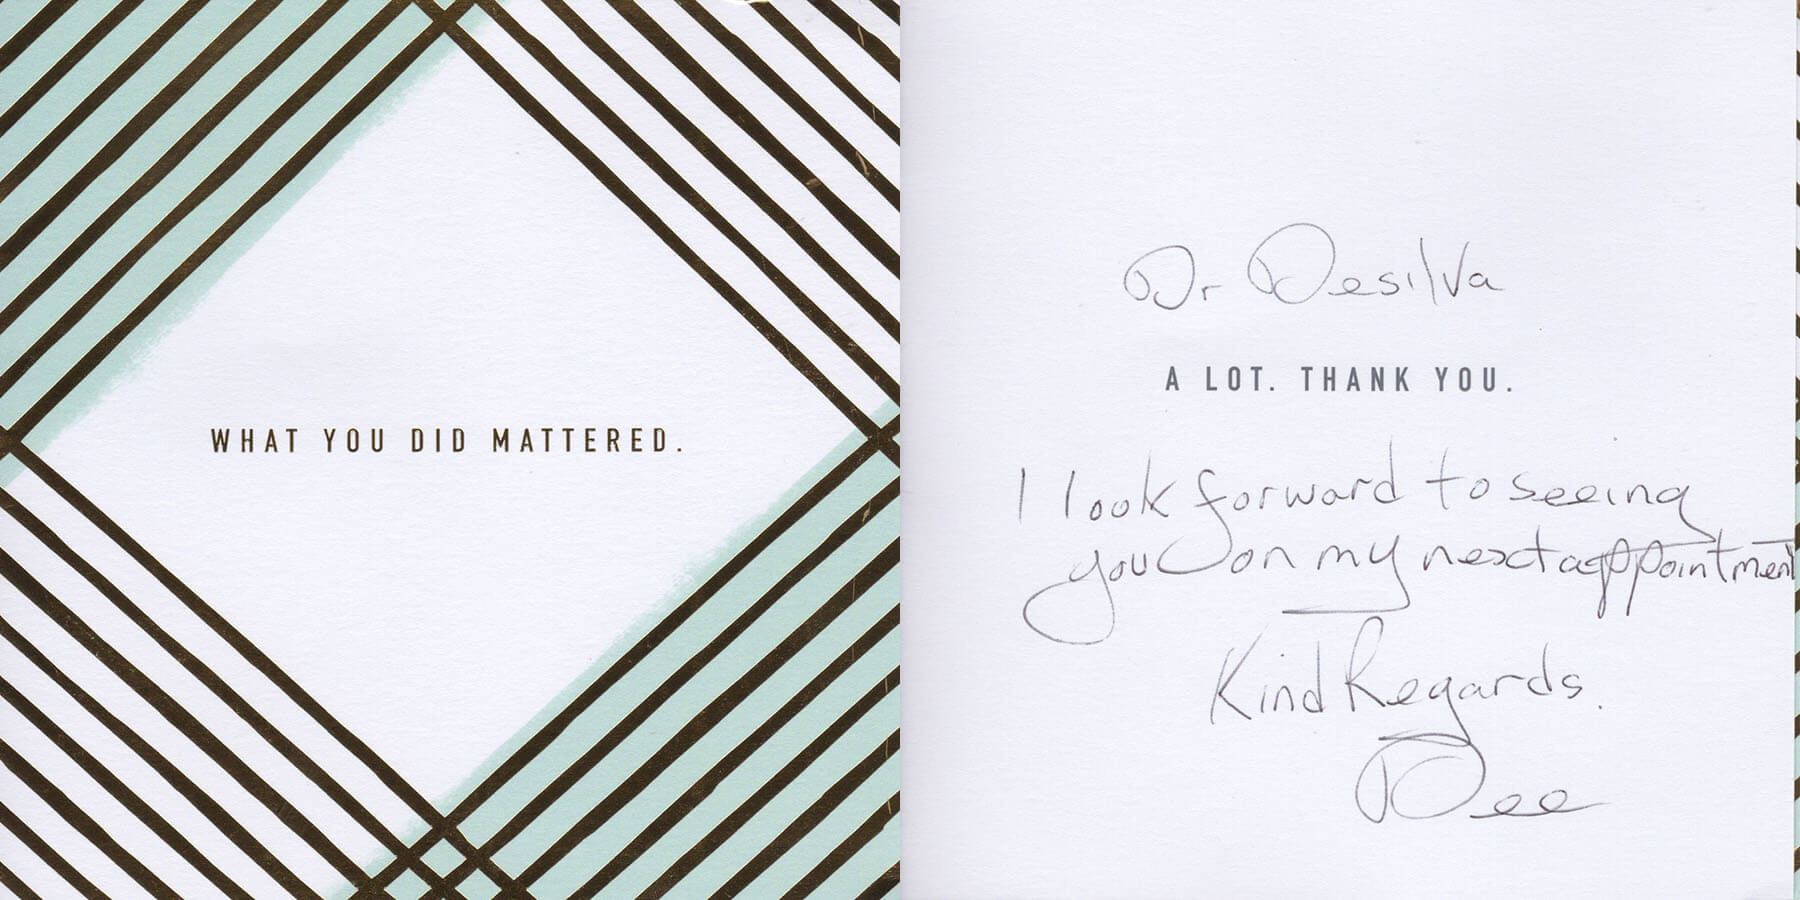 WHAT YOU DID MATTERED.
Dr Desilva
A LOT. THANK YOU.
I look forward to seeing
you on my next appointment
Kind Regards.
Dee